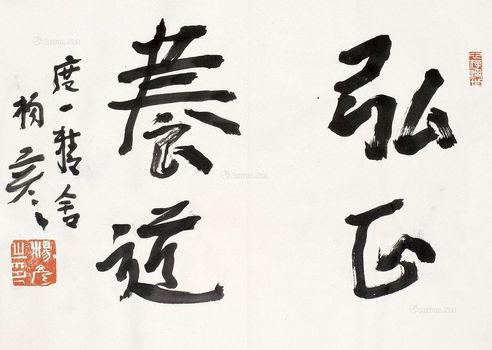 弘正
養道
度一精舍
楊彦